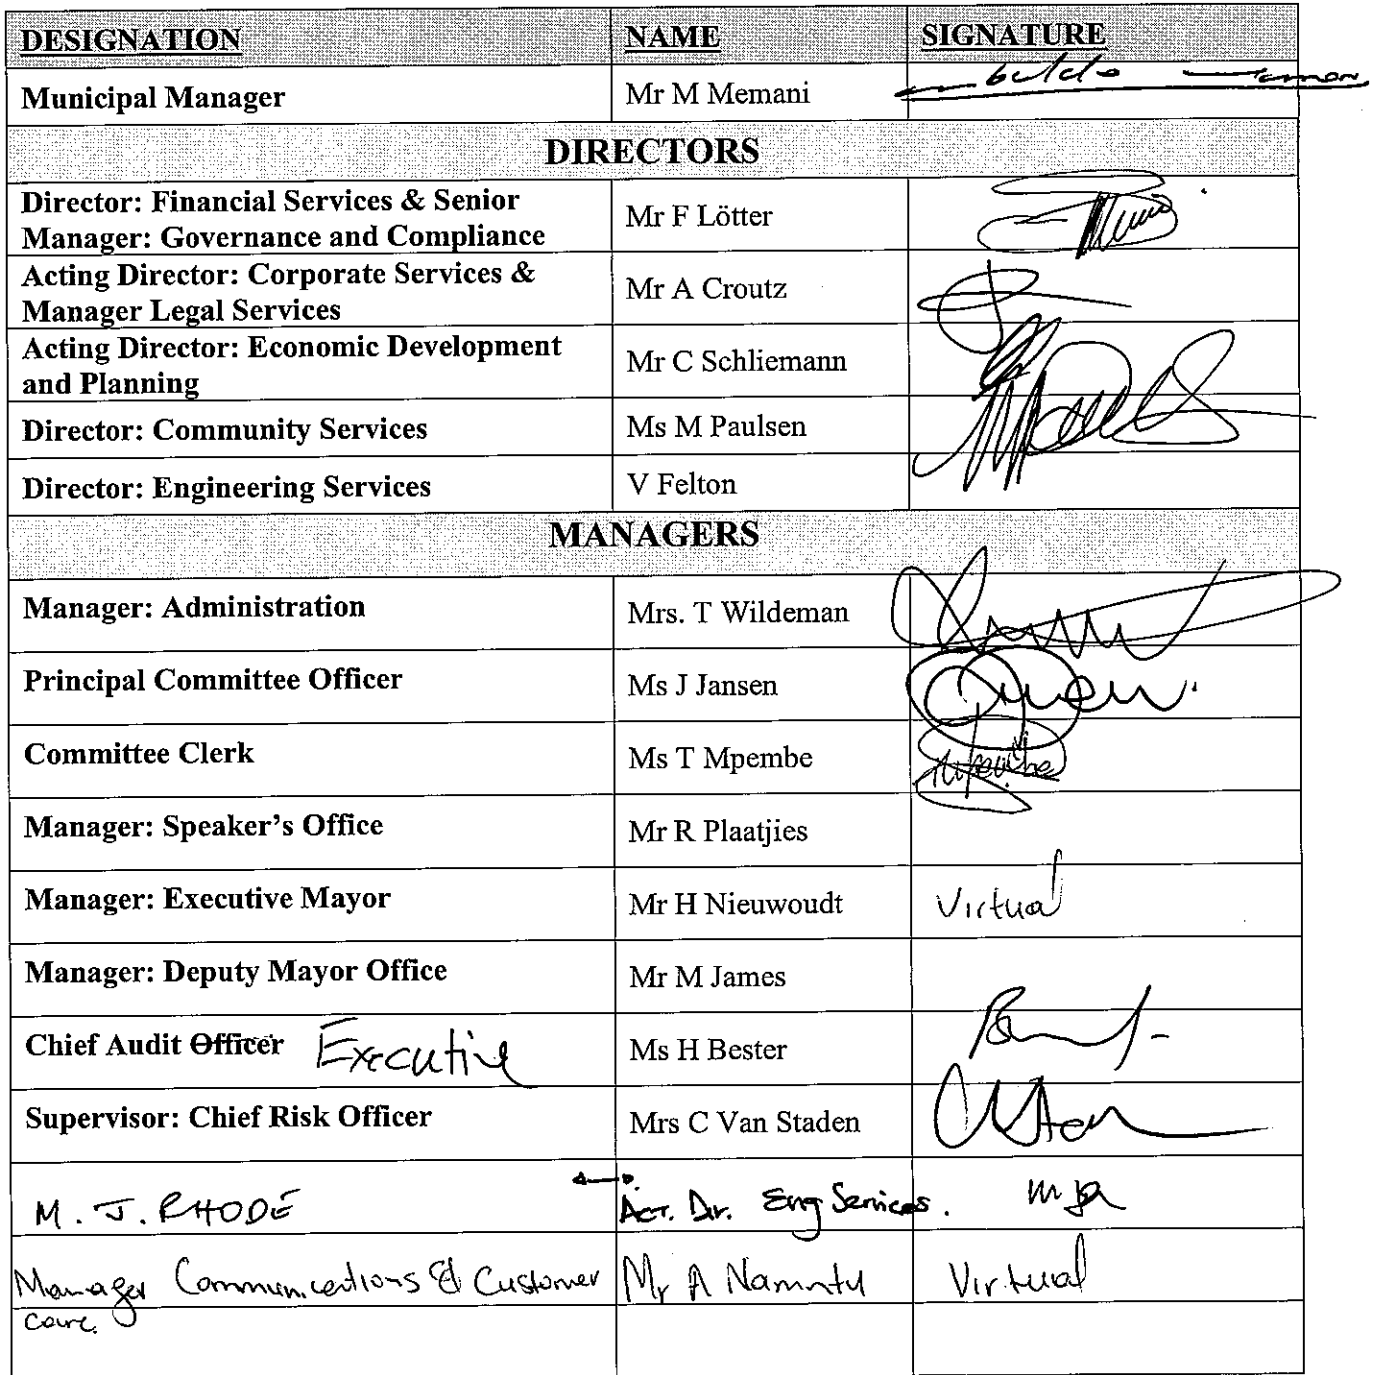 DESIGNATION NAME SIGNATURE
Municipal Manager Mr M Memani
DIRECTORS
Director: Financial Services & Senior
Manager: Governance and Compliance Mr F Lötter
Acting Director: Corporate Services &
Manager Legal Services Mr A Croutz
Acting Director: Economic Development
and Planning Mr C Schliemann
Director: Community Services Ms M Paulsen
Director: Engineering Services V Felton
MANAGERS
Manager: Administration Mrs. T Wildeman
Principal Committee Officer Ms J Jansen
Committee Clerk Ms T Mpembe
Manager: Speaker's Office Mr R Plaatjies
Manager: Executive Mayor Mr H Nieuwoudt Virtual
Manager: Deputy Mayor Office Mr M James
Chief Audit Officer Executive Ms H Bester
Supervisor: Chief Risk Officer Mrs C Van Staden
M. J. RHODE Act. Dir. Eng Services.
Manager Communications & Customer Mr A Virtual
care.